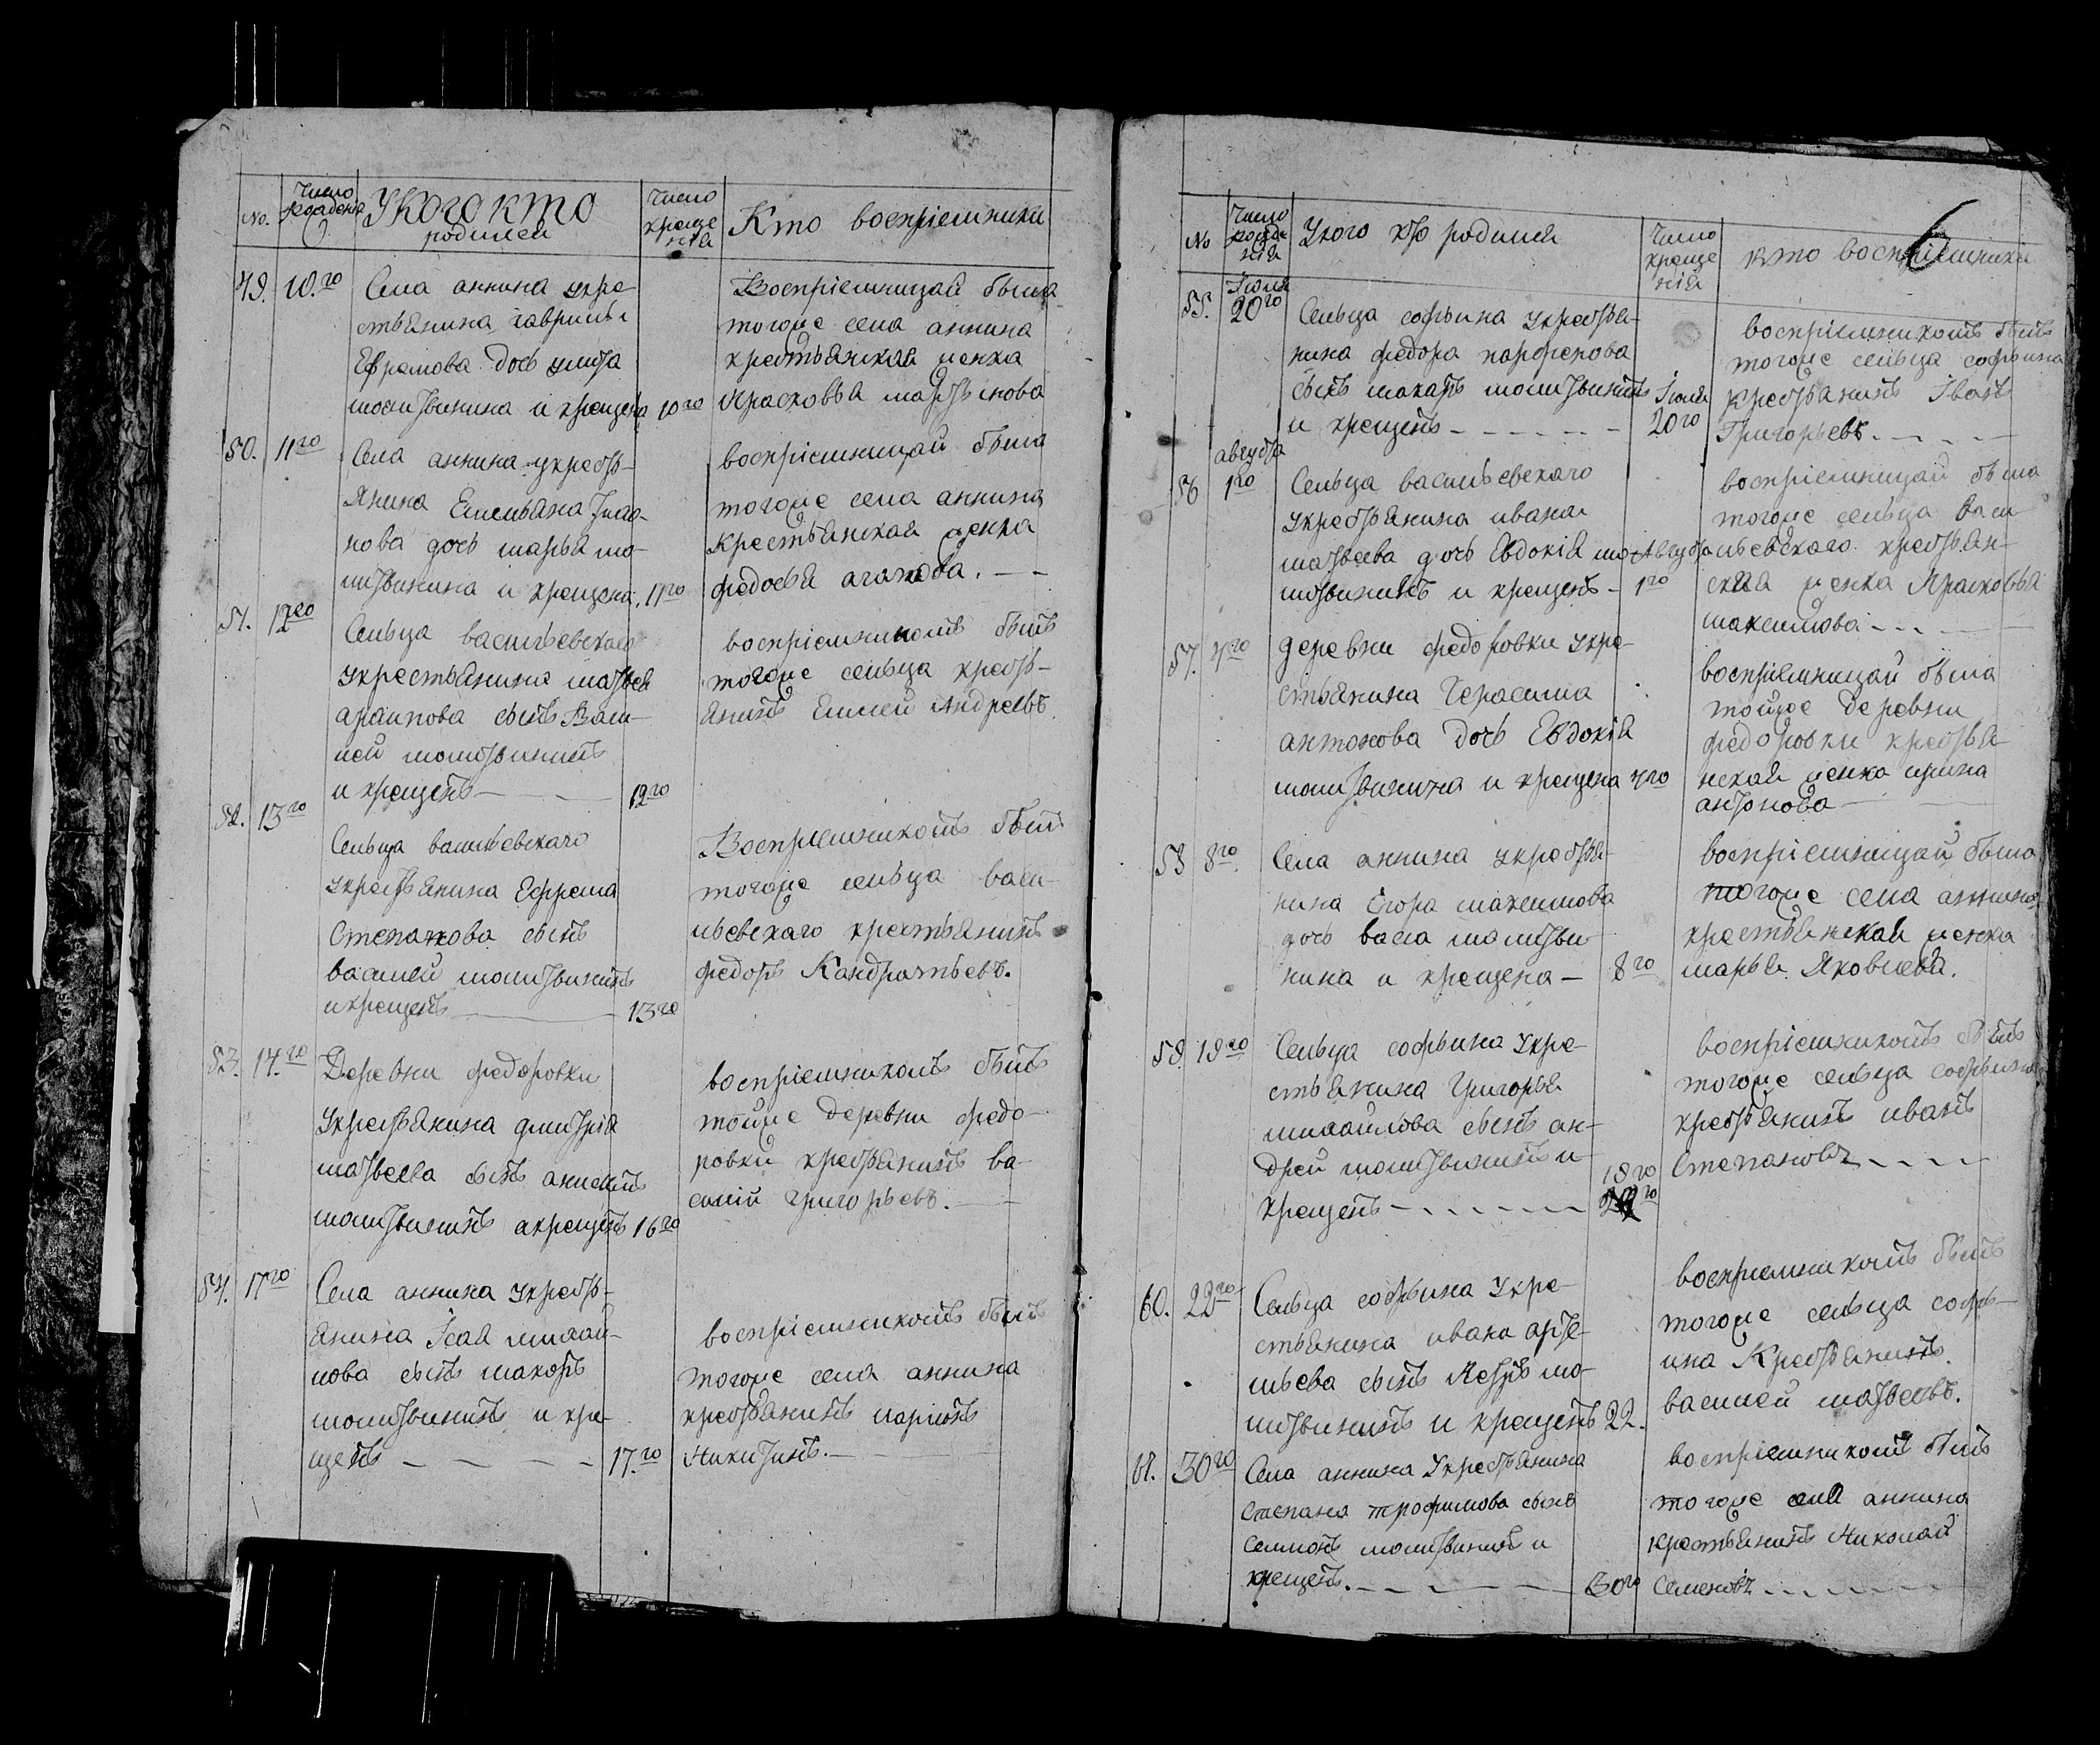 No.
Число рождения
У кого кто
родился
Число
креще
нїя
Кто воспрїемники
49. 10.го
Села аннина укре
стьянина гаврилы
Ефремова дочь улита
молитвинина и крещена 10го
Воспрїемницай была
тогоже села аннина
крестьянская женка
Прасковья мартынова
50. 11го
Села аннина укресть-
янина Емельяна
нова дочь марья мо-
литвинина и крещена. 11го
воспрїемницай была
тогоже села аннина
Крестьянская женка
федосья агапова.
51. 12го
Сельца васильевскаго
укрестьянина матвея
архипова сынъ Васи-
лей молитвининъ
и крещенъ 12го
воспрїемникомъ былъ
тогоже сельца кресть-
янинъ Елисей Андреевъ
52. 13го
Сельца васильевскаго
укрестьянина Ефрема
Степанова сынъ
василей молитвининъ
и крещенъ 13го
Воспрїемникомъ былъ
тогоже сельца васи-
льевскаго крестьянинъ
федоръ Кандратьевъ.
53. 14.го
Деревни федоровки
укрестьянина дмитрїя
матвеева сынъ
молитвининъ акрещенъ 16го
воспрїемникомъ былъ
тойже деревни федо-
ровки крестьянинъ ва-
силїй григорьевъ.
54. 17го
Села аннина укресть-
янина Ісая михай-
лова сынъ макаръ
молитвининъ и кре-
щенъ 17.го
воспрїемникомъ былъ
тогоже села аннина
крестьянинъ ларионъ
Никитинъ.
6
No
Число
рожде
нїя
У кого кто родился
Число
креще
нїя
Кто воспрїемники
Іюля
55. 20го
Сельца софьина укрестья-
нина федора парфенова
сынъ макаръ молитвининъ Іюля
и крещенъ 20го
воспрїемникомъ былъ
тогоже сельца софьина
крестьянинъ Іванъ
Григорьевъ.
августа
56 1го
Сельца васильевскаго
укрестьянина ивана
матвеева дочь Евдокїя мо- Августа
литвининъ и крещенъ 1го
воспрїемницай была
тогоже сельца васи
льевскаго крестьян-
ская женка Прасковья
максимова
57. 4го
деревни федоровки укре-
стьянина Герасима
антонова дочь Евдокїя
молитвинина и крещена 4го
воспрїемницай была
тойже деревни
федоровки крестья-
нская женка ирина
антонова
58 8го.
Села аннина укрестья-
нина Егора максимова
дочь васа молитви-
нина и крещена 8го
воспрїемницай была
тогоже села аннина
крестьянская женка
марья Яковлева.
59. 19го
Сельца софьина укре-
стьянина Григорья
михайлова сынъ ан-
дрей молитвининъ и
крещенъ 19го
воспрїемникомъ былъ
тогоже сельца софьина
крестьянинъ иванъ
Степановъ
60. 22го
Сельца софьина Укре-
стьянина ивана арте-
мьева сынъ Петръ мо-
литвининъ и крещенъ 22.
воспрїемникомъ былъ
тогоже сельца софь-
ина Крестьянинъ.
василей матвеевъ.
61. 30го
Села аннина Укрестьянина
Степана трофимова сынъ
Семионъ молитвининъ и
крещенъ. 30го
воспрїемникомъ былъ
тогоже села аннина
крестьянинъ Николай
Семеновъ